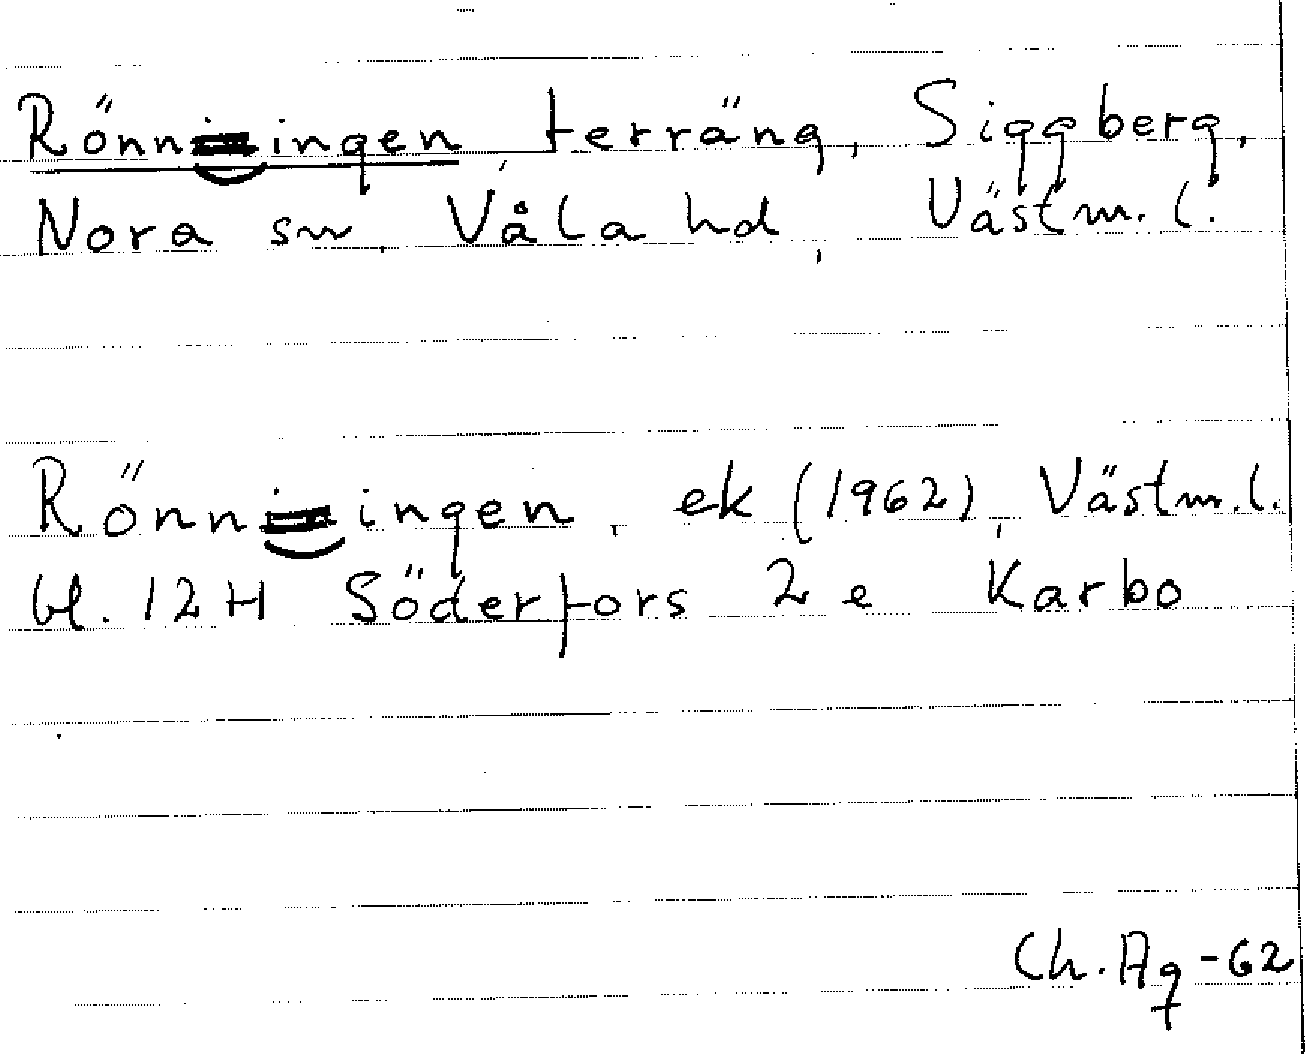 Rönningen, terräng, Siggberg,
Nora sn, Våla hd, Västm. l.
Rönningen, ek (1962), Västm. l.
bl. 12H Söderfors 2 e Karbo
Ch. Ag -62